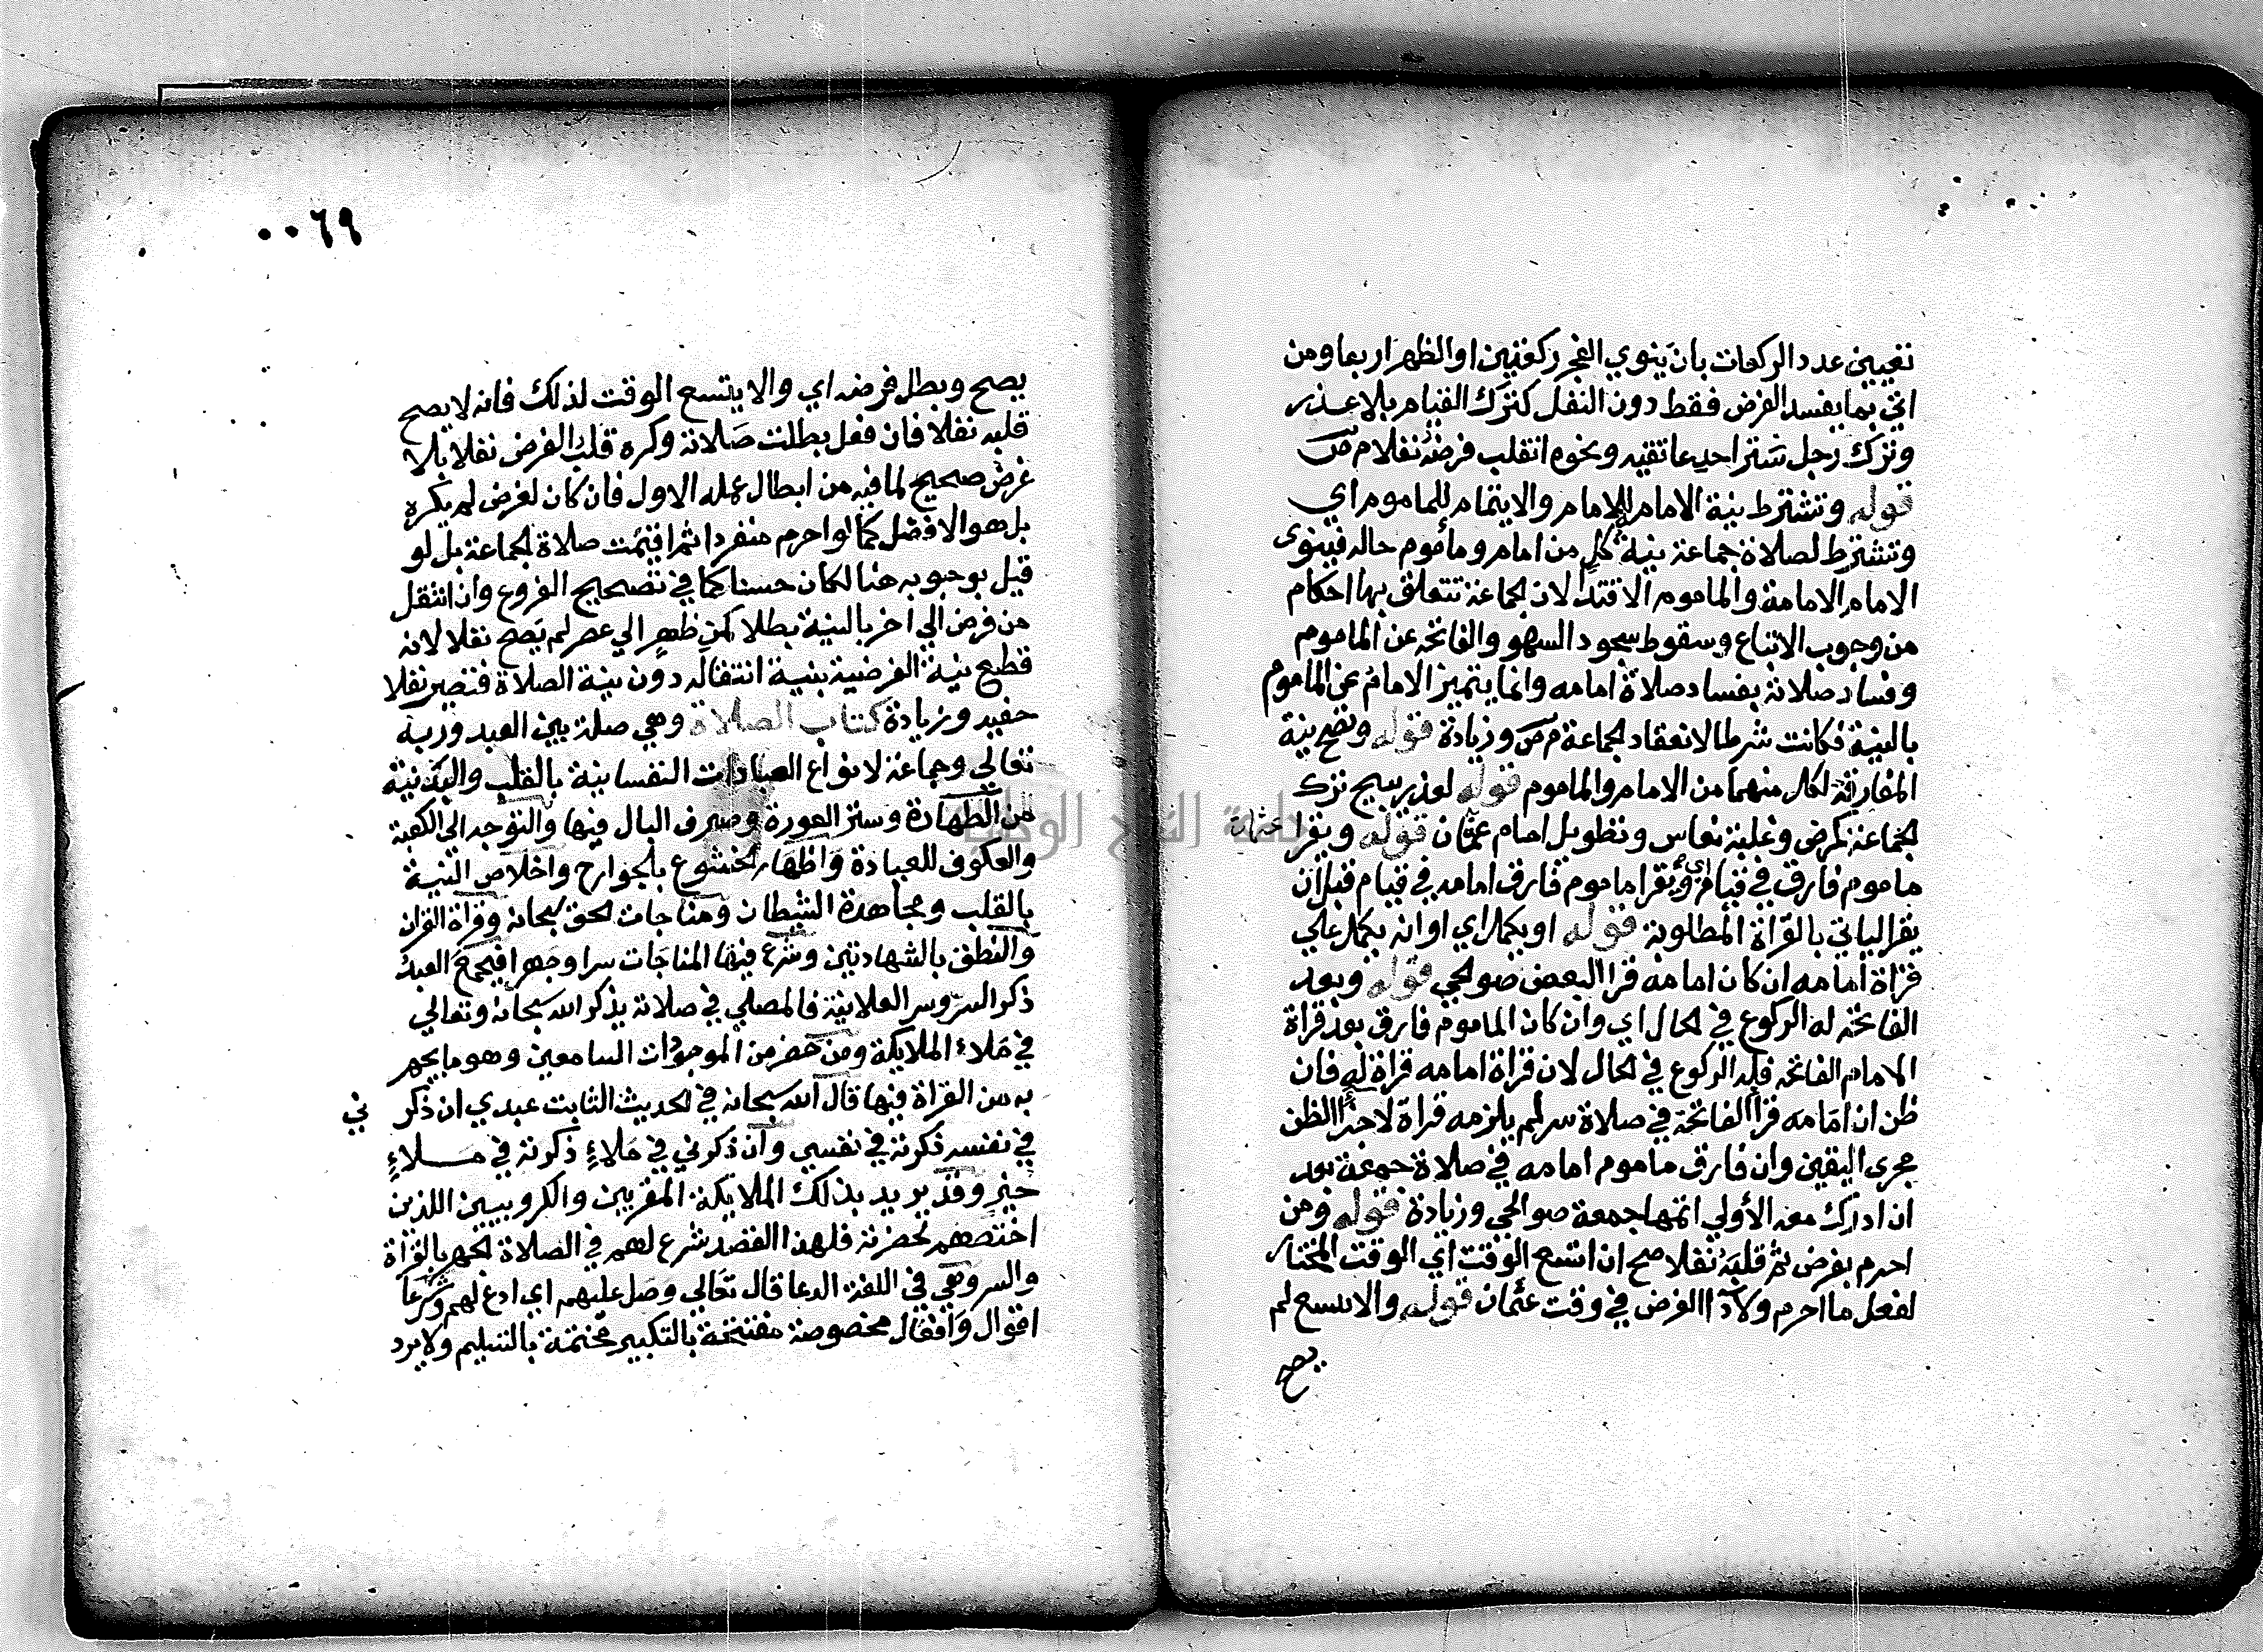 تعيين عدد الركعات بان ينوي الفجر ركعتين او الظهر اربعا ومن
اتي بما يفسد الفرض فقط دون النفل كترك القيام بلا عذر
وترك رجل ستر احد عاتقيه ونحوه انقلب فرضه نفلا م ص
قوله وتشترط نية الامامة للامام والايتمام للماموم اي
وتشترط لصلاة جماعة نية كل من امام وماموم حاله فينوي
الامام الامامة والماموم الاقتدا لان الجماعة تتعلق بها احكام
من وجوب الاتباع وسقوط سجود السهو والفاتحة عن الماموم
وفساد صلاته بفساد صلاة امامه وانما يتميز الامام عن الماموم
بالنية فكانت شرطا لانعقاد الجماعة م ص وزيادة قوله وتصح نية
المفارقة لكل منهما من الامام والماموم قوله لعذر يبيح ترك
الجماعة كمرض وغلبة نعاس وتطويل امام عثمان قوله ويقرا
عثمان
ماموم فارق في قيام اي ويقرا ماموم فارق امامه في قيام قبل ان
يقرا لياتي بالقراة المطلوبة قوله او يكمل اي او انه يكمل علي
قراة امامه ان كان امامه قرا البعض صوالحي قوله وبعد
الفاتحة له الركوع في الحال اي وان كان الماموم فارق بعد قراة
الامام الفاتحة فله الركوع في الحال لان قراة امامه قراة له فان
ظن ان امامه قرا الفاتحة في صلاة سر لم يلزمه قراة لاجرا الظن
مجري اليقين وان فارق ماموم امامه في صلاة جمعة بعد
ان ادرك معه الأولي اتمها جمعة صوالحي وزيادة قوله ومن
احرم بفرض ثم قلبه نفلا صح ان اتسع الوقت اي الوقت المختار
لفعل ما احرم ولادا الفرض في وقت عثمان قوله والا يتسع لم
يصح
٠٠٦٩
يصح وبطل فرضه اي والا يتسع الوقت لذلك فانه لا يصح
قلبه نفلا فان فعل بطلت صلاته وكره قلب الفرض نفلا بلا
غرض صحيح لما فيه من ابطال عمله الاول فان كان لغرض لم يكره
بل هو الافضل كما لو احرم منفردا ثم اقيمت صلاة الجماعة بل لو
قيل بوجوبه هنا لكان حسنا كما في تصحيح الفروع وان انتقل
من فرض الي اخر بالنية بطلا كمن ظهر الي عصر لم يصح نفلا لانه
قطع نية الفرضية بنية انتقاله دون نية الصلاة فتصير نفلا
حفيد وزيادة كتاب الصلاة وهي صلة بين العبد وربه
تعالي وجماعة لانواع العبادات النفسانية بالقلب والبدنية
من الطهارة وستر العورة وصرف البال فيها والتوجه الي الكعبة
والعكوف للعبادة واظهار الخشوع بالجوارح واخلاص النية
بالقلب ومجاهدة الشيطان ومناجات الحق سبحانه وقراة القران
والنطق بالشهادتين وشرع فيها المناجات سرا وجهرا فيجمع العبد
ذكر السر وسر العلانية فالمصلي في صلاته يذكر الله سبحانه وتعالي
في ملاء الملايكة ومن حضر من الموجودات السامعين وهو ما يجهر
به من القراة فيها قال الله سبحانه في الحديث الثابت عبدي ان ذكر ني
في نفسه ذكرته في نفسي وان ذكرني في ملاءٍ ذكرته في مـلاءٍ
خير وقد يريد بذلك الملايكة المقربين والكروبيين اللذين
اختصهم لحضرته فلهذا القصد شرع لهم في الصلاة الجهر بالقراة
والسر وهي في اللغة الدعا قال تعالي وصل عليهم اي ادع لهم وشرعا
اقوال وافعال مخصوصة مفتتحة بالتكبير مختتمة بالتسليم ولا يرد